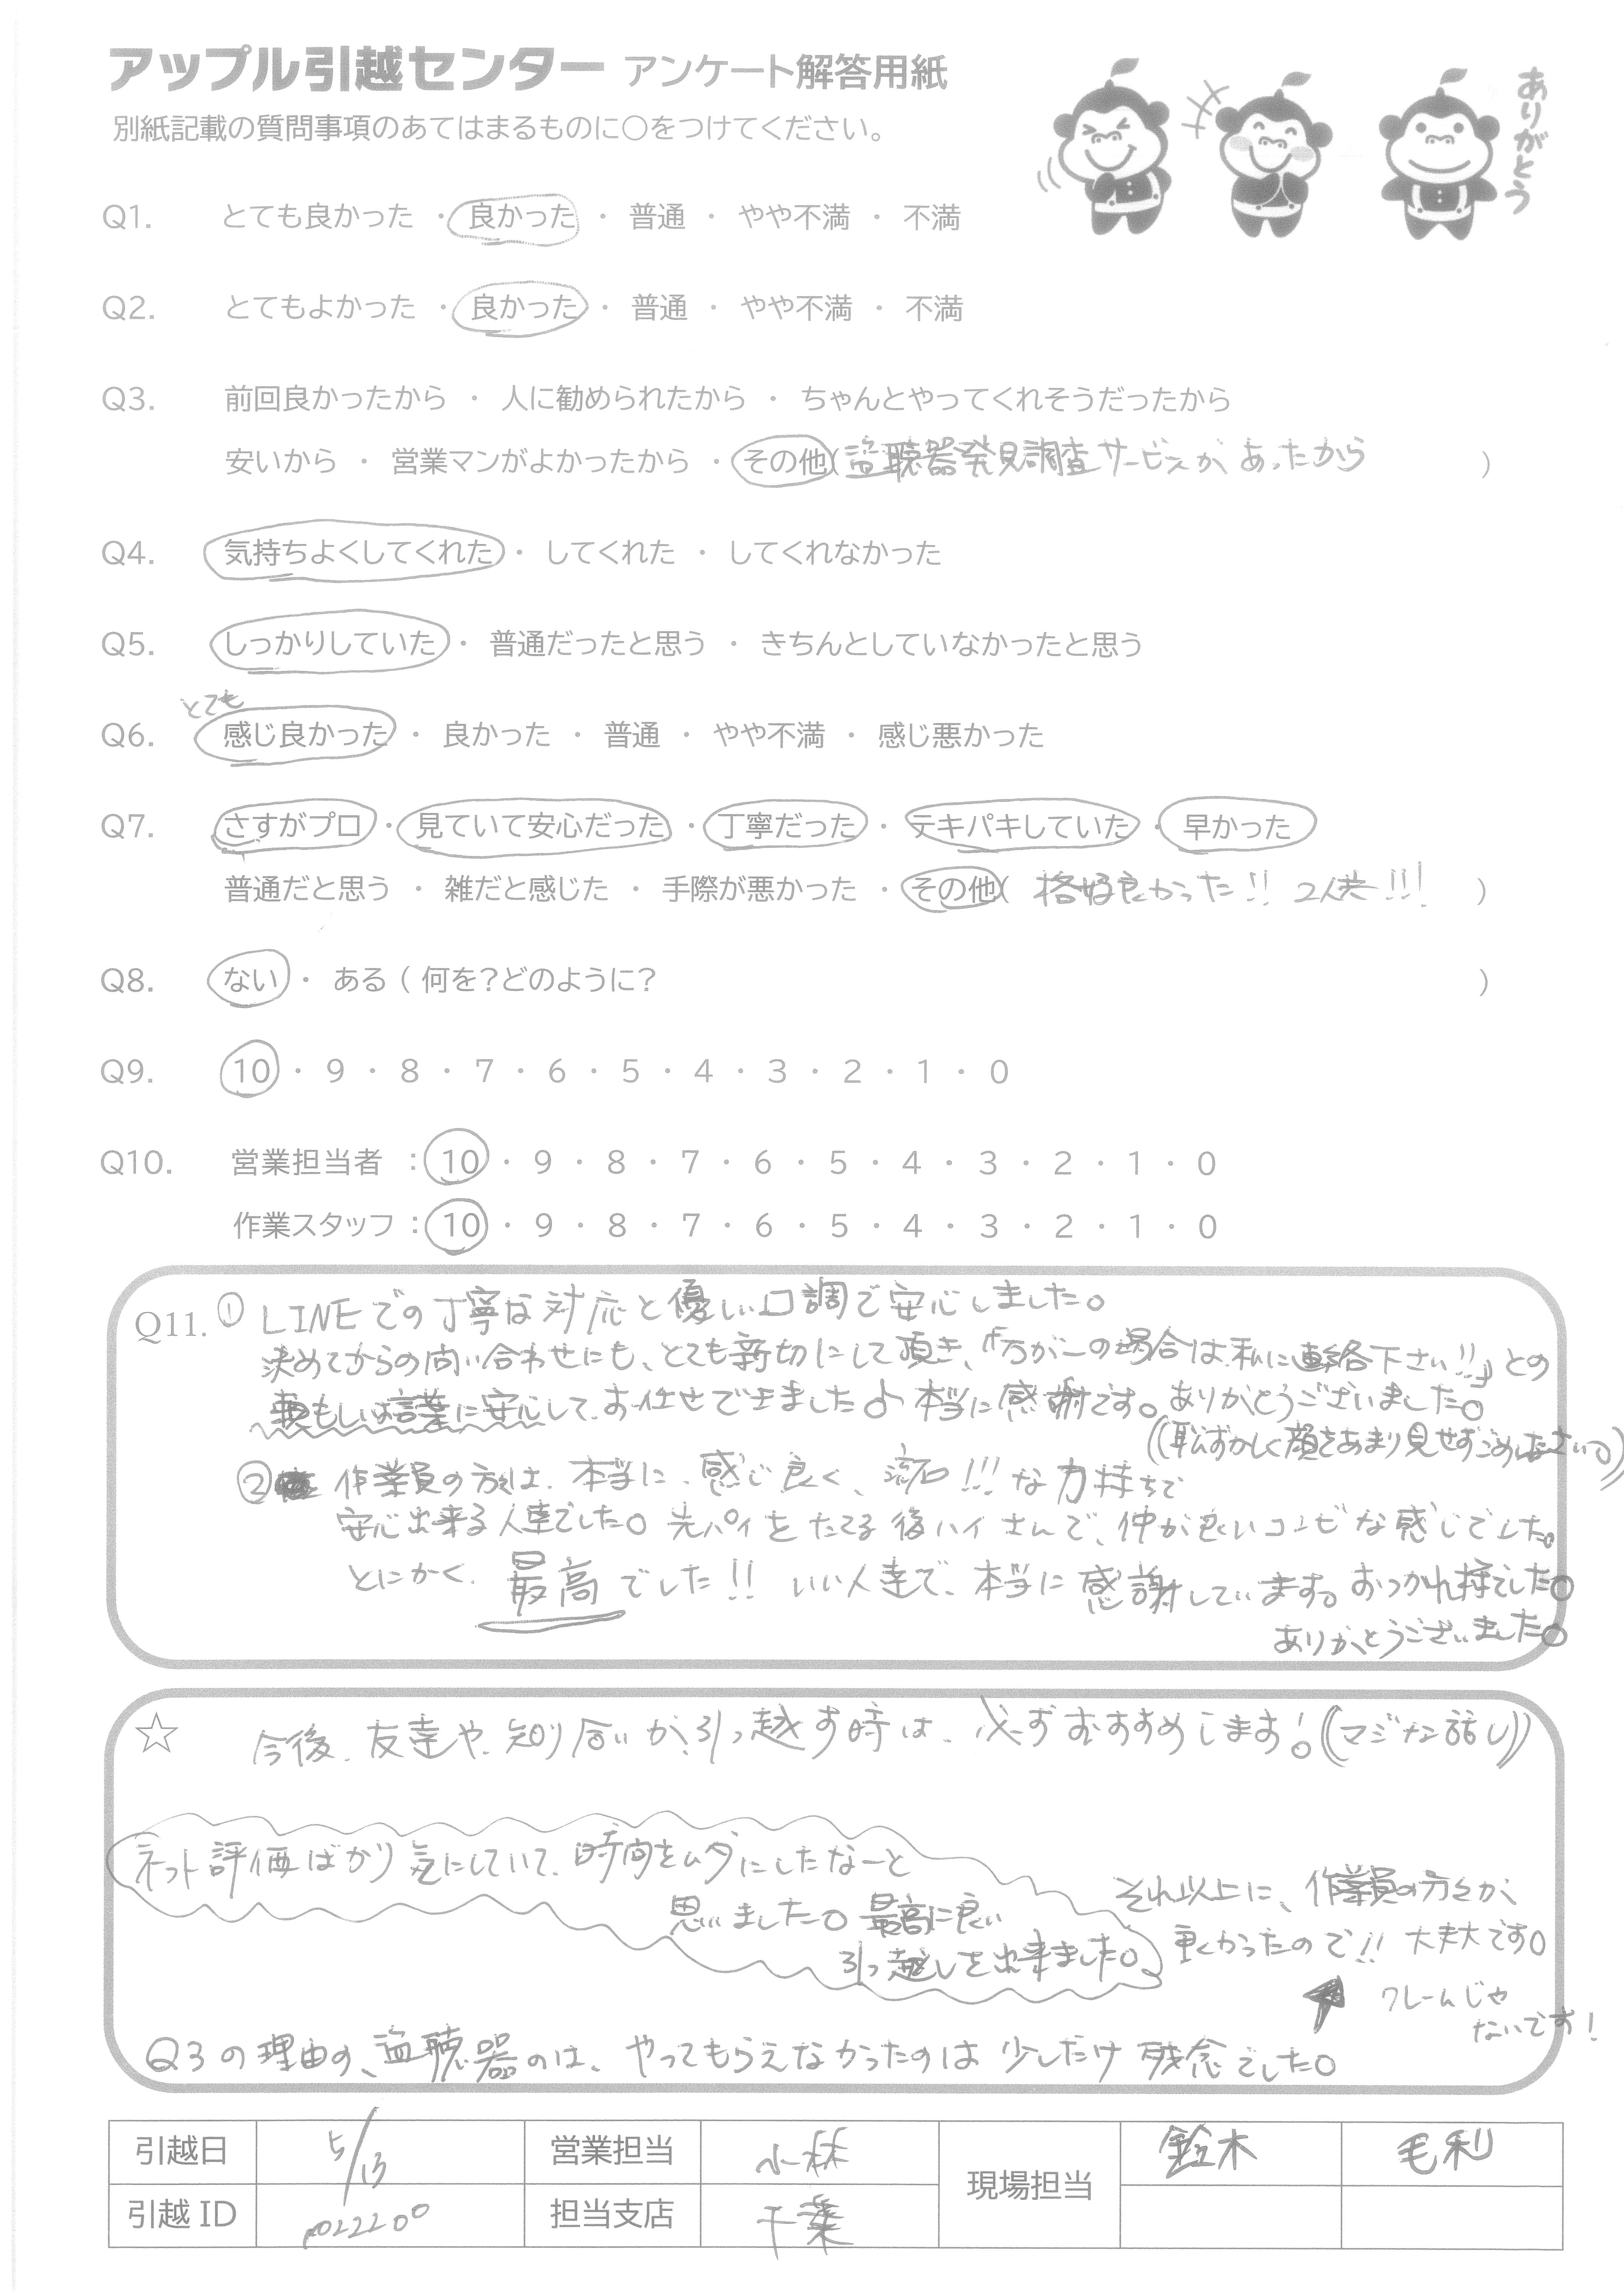 アップル引越センター アンケート解答用紙
ありがとう
別紙記載の質問事項のあてはまるものに○をつけてください。
Q1. とても良かった ・ 良かった ・ 普通 ・ やや不満 ・ 不満
Q2. とてもよかった ・ 良かった ・ 普通 ・ やや不満 ・ 不満
Q3. 前回良かったから ・ 人に勧められたから ・ ちゃんとやってくれそうだったから
安いから ・ 営業マンがよかったから ・ その他(盗聴器発見調査サービスが あったから )
Q4. 気持ちよくしてくれた ・ してくれた ・ してくれなかった
Q5. しっかりしていた ・ 普通だったと思う ・ きちんとしていなかったと思う
とても
Q6. 感じ良かった ・ 良かった ・ 普通 ・ やや不満 ・ 感じ悪かった
Q7. さすがプロ ・ 見ていて安心だった ・ 丁寧だった ・ テキパキしていた ・ 早かった
普通だと思う ・ 雑だと感じた ・ 手際が悪かった ・ その他( 格好良かった!! 2人共!!! )
Q8. ない ・ ある ( 何を?どのように? )
Q9. 10 ・ 9 ・ 8 ・ 7 ・ 6 ・ 5 ・ 4 ・ 3 ・ 2 ・ 1 ・ 0
Q10. 営業担当者 : 10 ・ 9 ・ 8 ・ 7 ・ 6 ・ 5 ・ 4 ・ 3 ・ 2 ・ 1 ・ 0
作業スタッフ : 10 ・ 9 ・ 8 ・ 7 ・ 6 ・ 5 ・ 4 ・ 3 ・ 2 ・ 1 ・ 0
Q11. ① LINEでの丁寧な対応と優しい口調で安心しました。
決めてからの問い合わせにも、とても親切にして頂き、「万が一の場合は私に連絡下さい!!」との
頼もしい言葉に安心して お任せできました♪ 本当に感謝です。ありがとうございました。
((恥ずかしく顔をあまり見せずごめんなさい。))
② 作業員の方は、本当に、感じ良く、流石!!!な力持ちで
安心出来る人達でした。先パイをたてる後ハイさんで、仲が良いコンビな感じでした。
とにかく、最高でした!! いい人達で、本当に感謝しています。おつかれ様でした。
ありがとうございました。
☆ 今後、友達や、知り合いが、引っ越す時は、必ずおすすめします!((マジな話し))
ネット評価ばかり気にしていて、時間をムダにしたなーと
思いました。最高に良い
引っ越しを出来ました。
それ以上に、作業員の方々が、
良かったので!! 大丈夫です。
クレームじゃ
ないです!
Q3の理由の、盗聴器のは、やってもらえなかったのは 少しだけ 残念でした。
引越日 5/13 営業担当 小林 現場担当 鈴木 毛利
引越 ID 担当支店 千葉